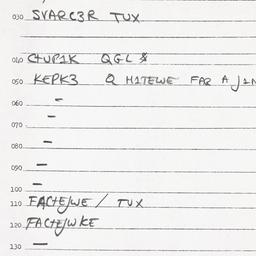 030 SVARC3R TUX
040 CTUP1K QGL &
050 KEPK3 Q H1TEWE FAR A J1N
060 –
070 –
080 –
090 –
100 –
110 FACTEJWE / TUX
120 FACTEJWKE
130 –